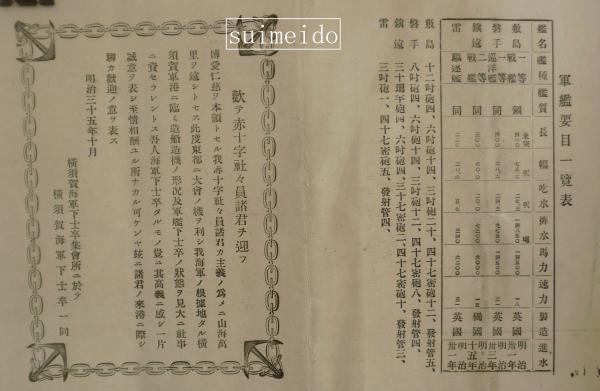 suimeido
軍艦要目一覽表
艦名 艦種 艦質 長 幅 吃水 排水 馬力 速力 製造 進水
敷島 一等戰艦 鋼 英國 明治卅一年
磐手 一等巡洋艦 同 英國 明治卅三年
鎮遠 二等戰艦 同 獨國 明治十五年
雷 驅逐艦 同 英國 明治卅一年
敷島 十二吋砲四、六吋砲十四、三吋砲二十、四十七密砲十二、發射管五、
磐手 八吋砲四、六吋砲十四、三吋砲十二、四十七密砲八、發射管四、
鎮遠 三十珊半砲四、六吋砲四、三十七密砲二、四十七密砲十、發射管三、
雷 三吋砲一、四十七密砲五、發射管四、
歡テ赤十字社々員諸君ヲ迎フ
博愛仁慈ヲ本領トセル我赤十字社々員諸君カ主義ノ爲メニ山海萬
里ヲ遠シトセス此度東都ニ大會ノ機ヲ利シ我海軍ノ根據地タル横
須賀軍港ニ臨ミ造船造機ノ形况及軍艦下士卒ノ狀態ヲ見大ニ社事
ニ資セラレントス吾人海軍下士卒タルモノ豈ニ其高義ニ感シ一片
誠意ヲ表シ至情相酬ユル所ナカル可ケンヤ茲ニ諸君ノ來港ニ際シ
聊カ歡迎ノ意ヲ表ス
明治三十五年十月
横須賀海軍下士卒集會所ニ於テ
横須賀海軍下士卒一同